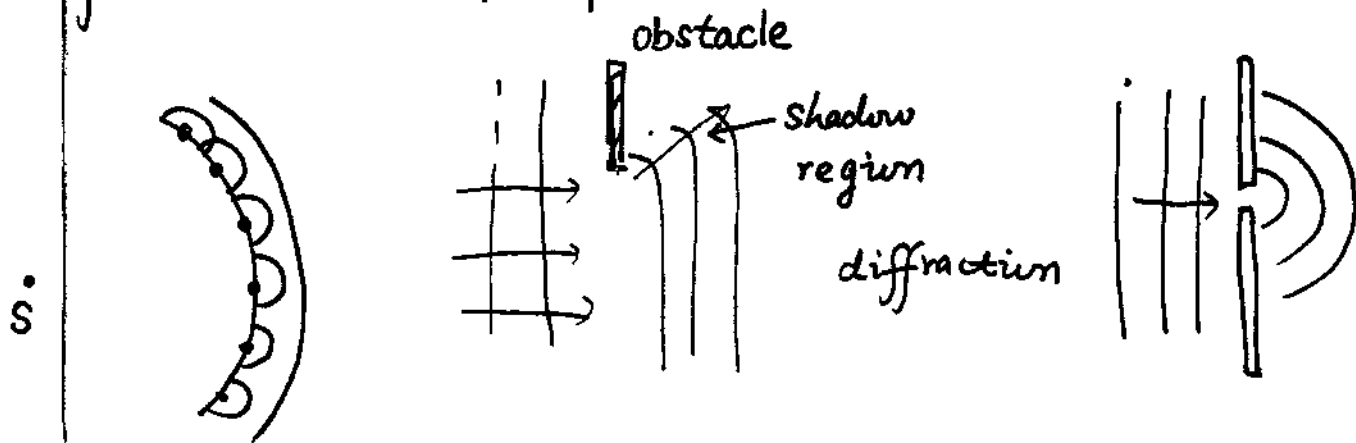 obstacle
shadow
region
diffraction
S